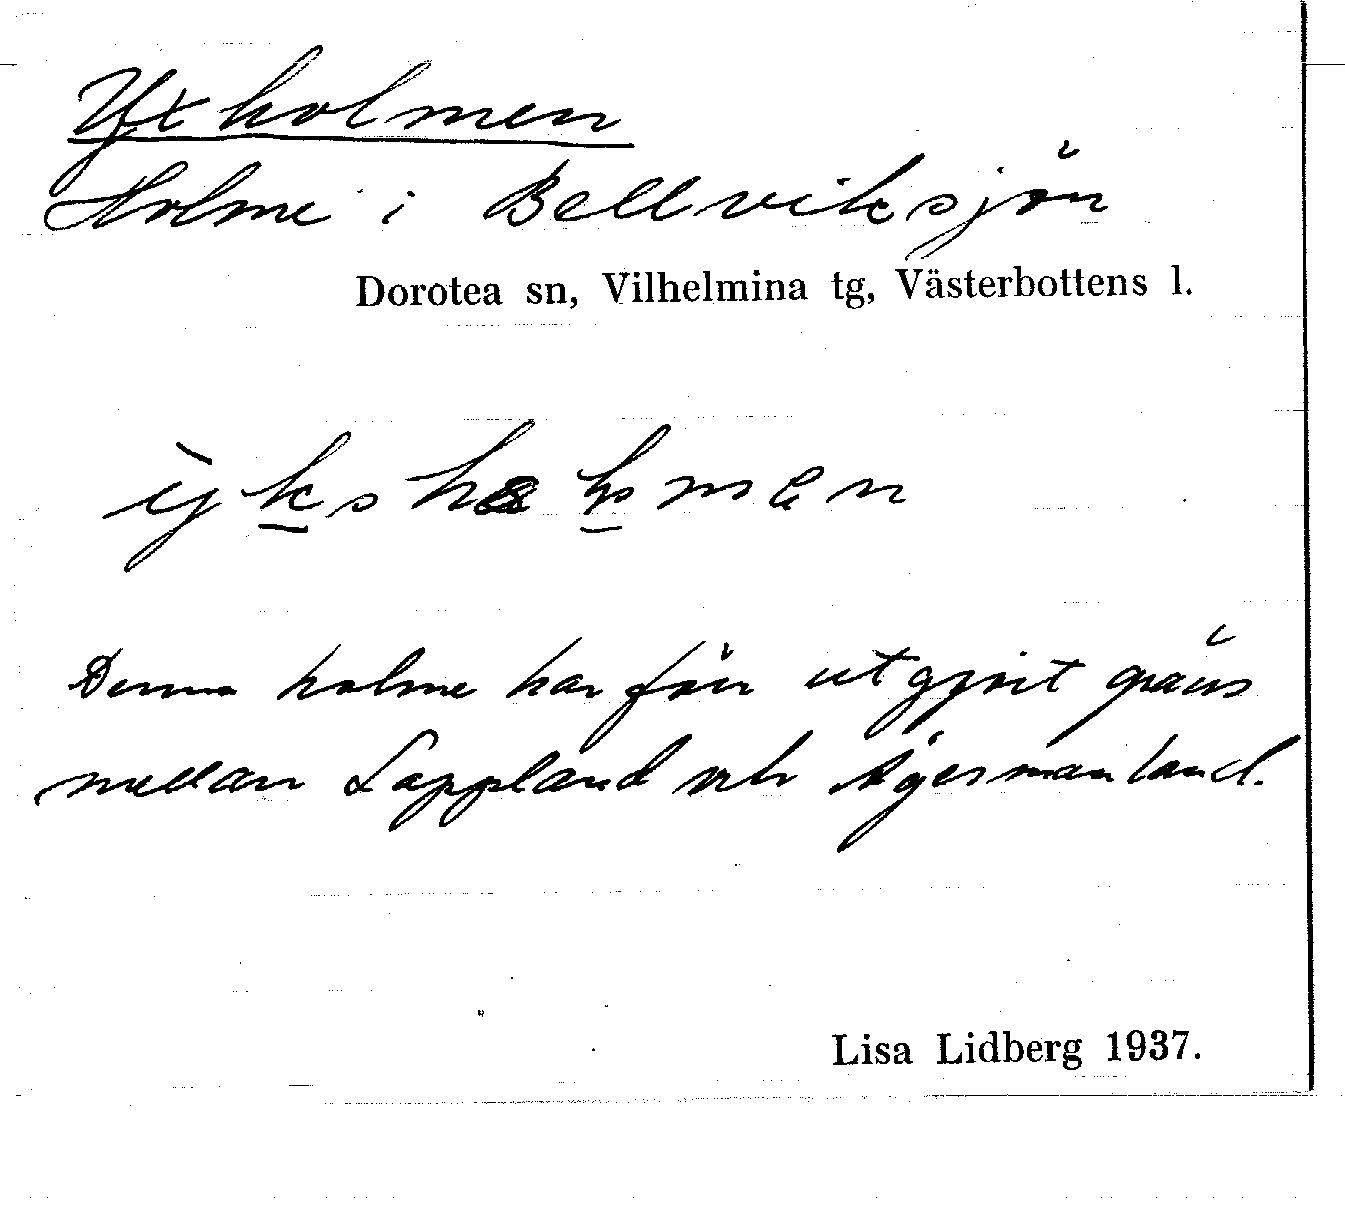 Yxholmen
Holme i Bellviksjön
Dorotea sn, Vilhelmina tg, Västerbottens l.
Denna holme har förr utgjort gräns
mellan Lappland och Ågermanland.
Lisa Lidberg 1937.